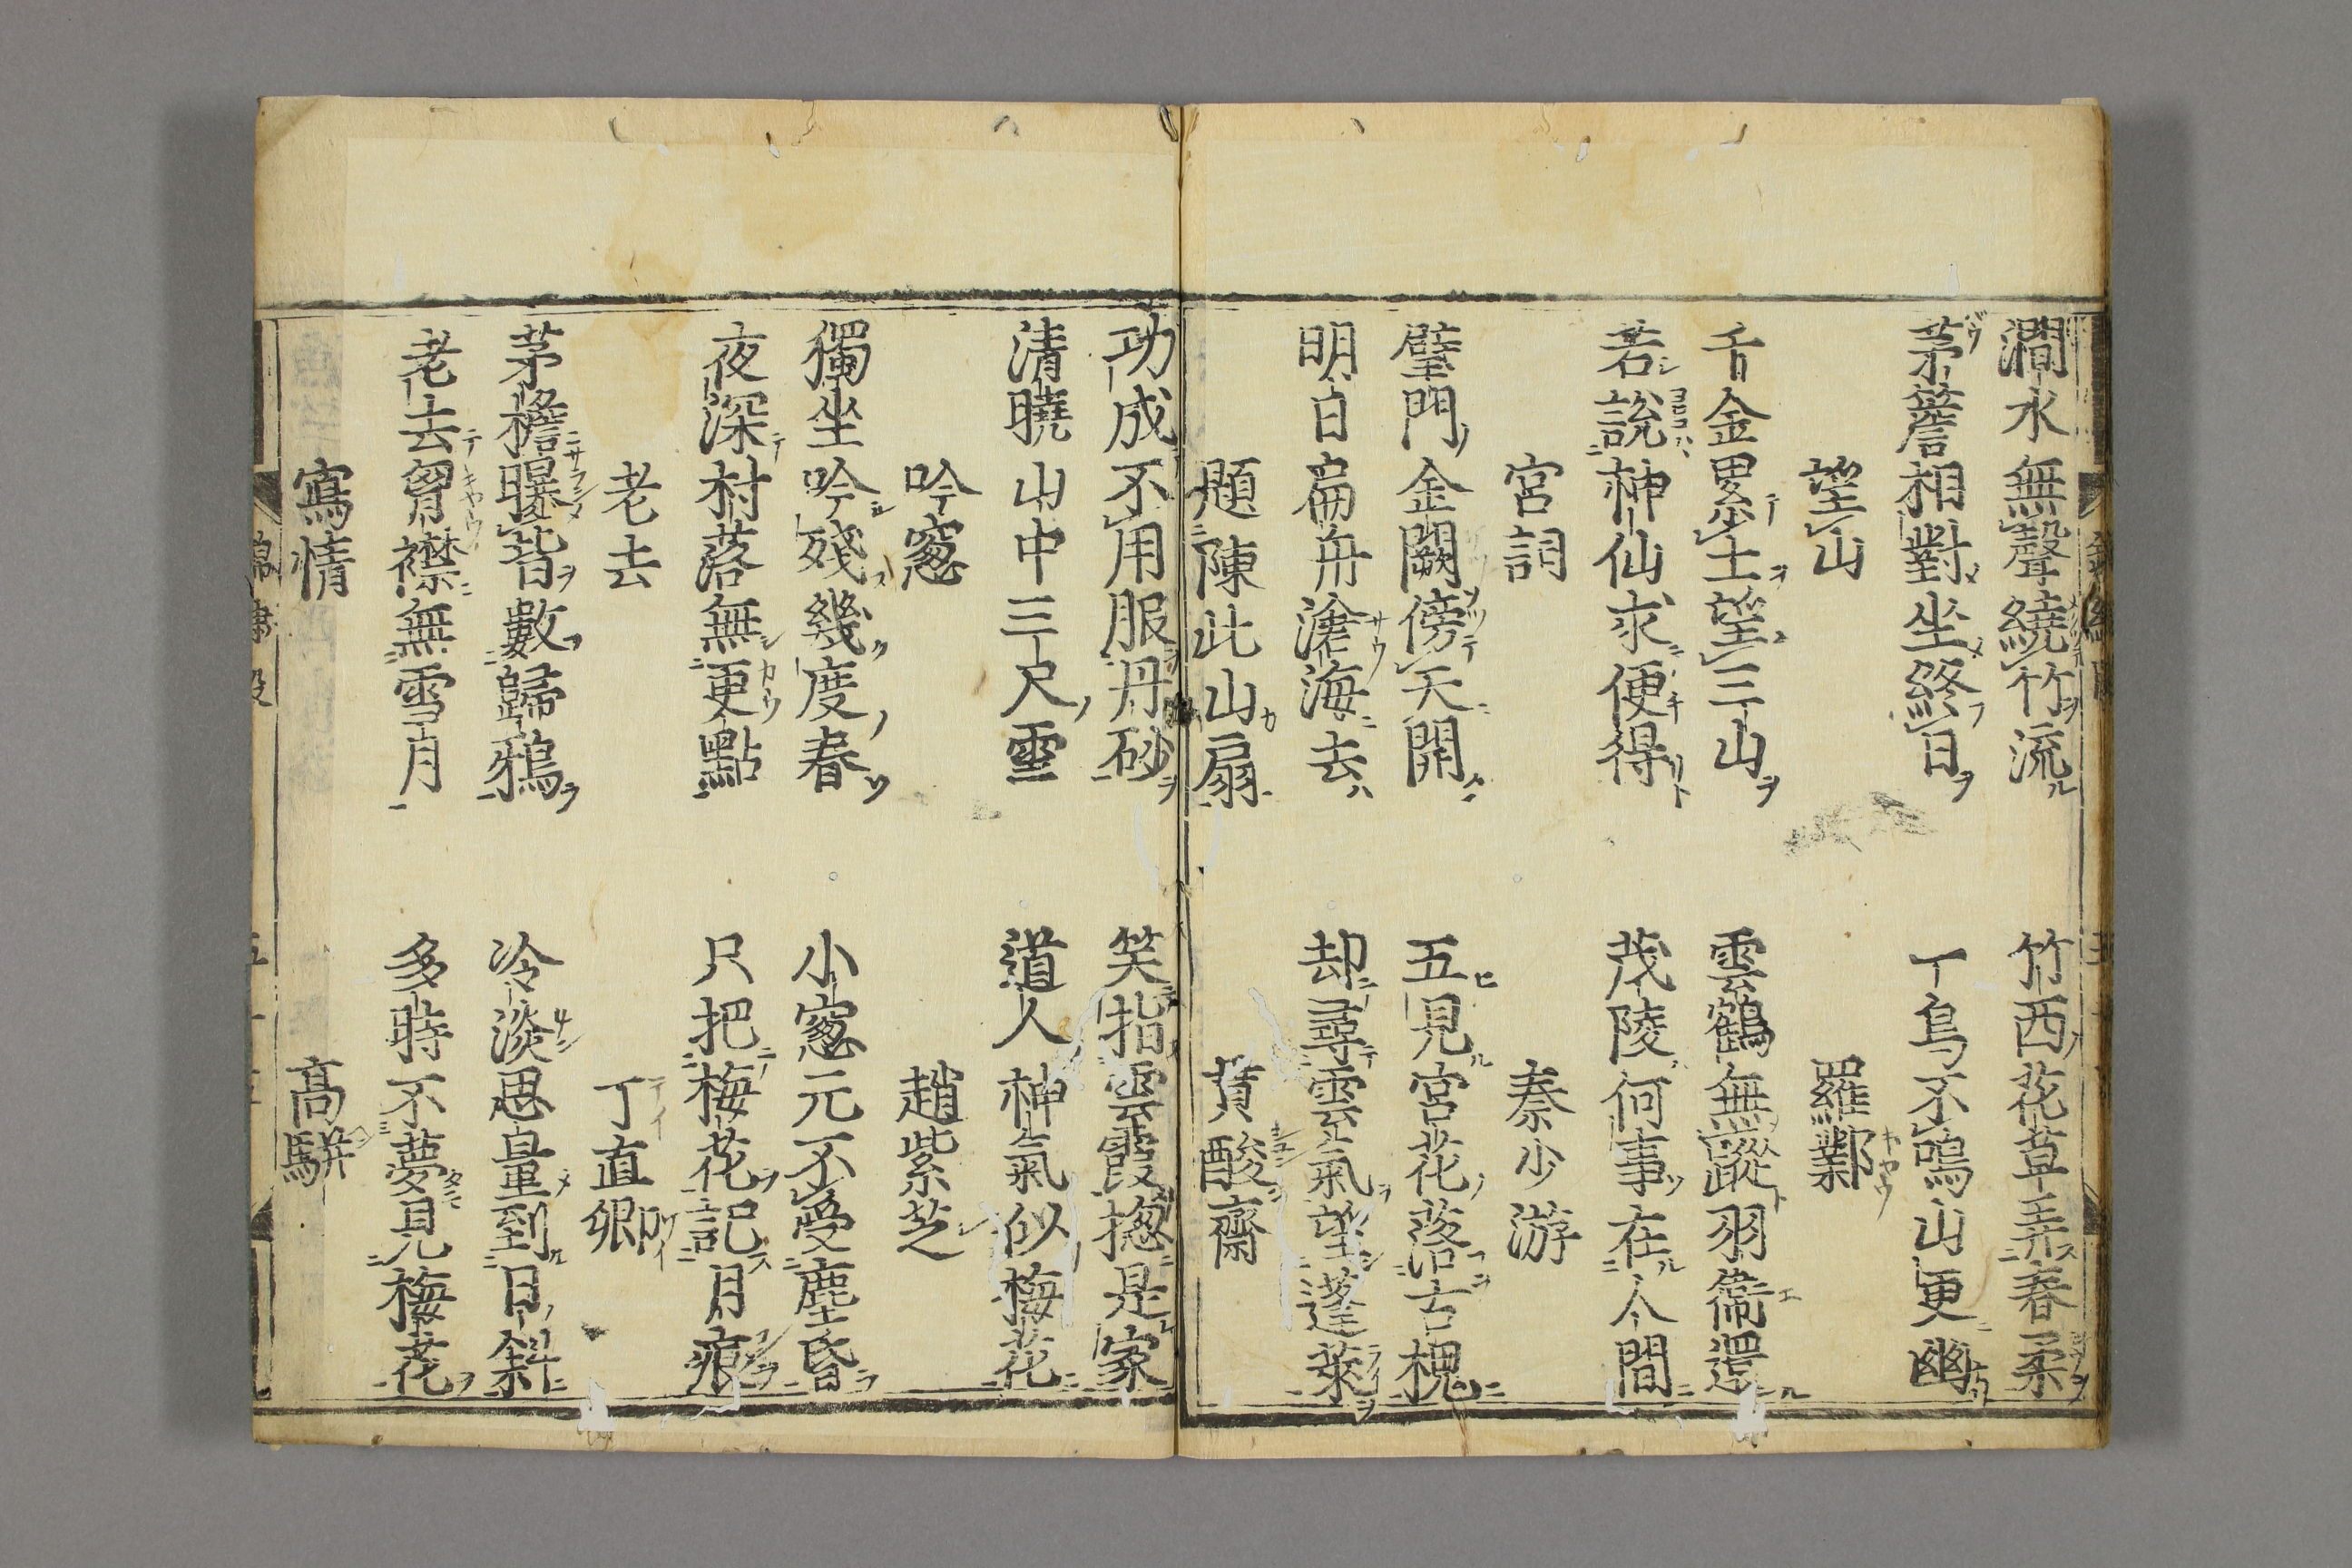 澗水無聲繞竹流　竹西花草弄春柔
茅簷相對坐終日　一鳥不鳴山更幽
望山　羅鄴
千金累土望三山　雲鶴無蹤羽衛還
若說神仙求便得　茂陵何事在人間
宮詞　秦少游
壁門金闕傍天開　五見宮花落古槐
明日扁舟滄海去　却尋雲氣望蓬萊
題陳此山扇　黃酸齋
功成不用服丹砂　笑指雲霞揔是家
清曉山中三尺雪　道人神氣似梅花
吟窻　趙紫芝
獨坐吟殘幾度春　小窻元不受塵昏
夜深村落無更點　只把梅花記月痕
老去　丁直卿
茅檐曝背數歸鴉　冷淡思量到日斜
老去胷襟無雪月　多時不夢見梅花
寫情　高駢